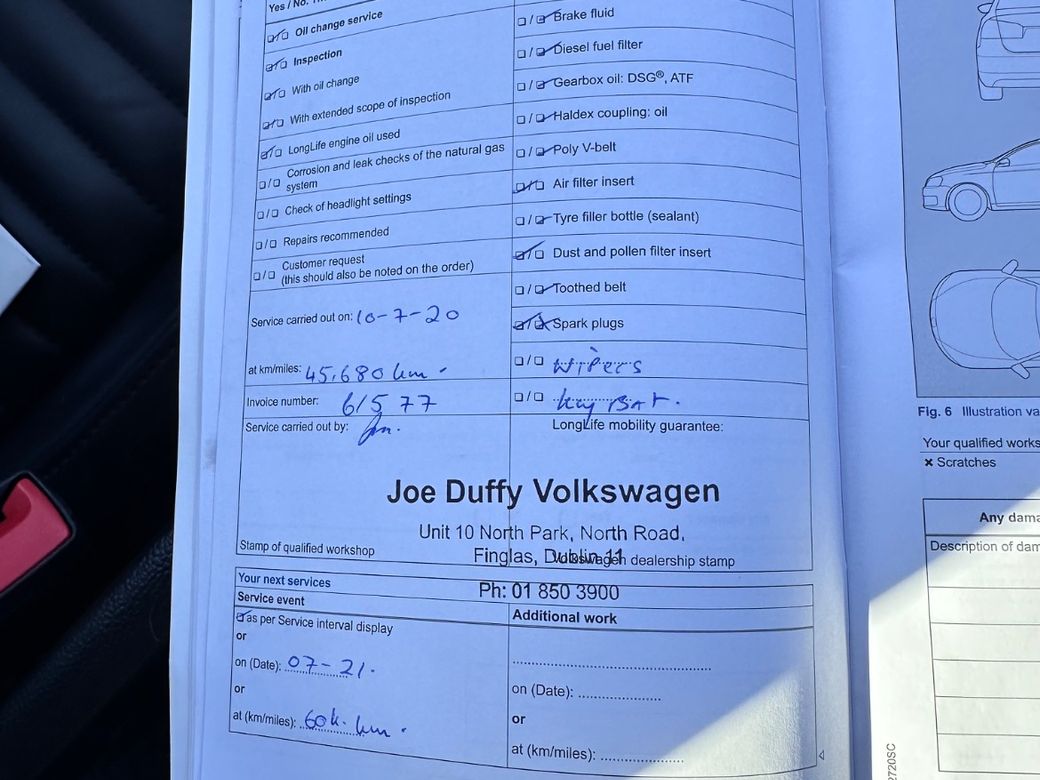 Yes / No.
Oil change service
Inspection
With oil change
With extended scope of inspection
LongLife engine oil used
Corrosion and leak checks of the natural gas
system
Check of headlight settings
Repairs recommended
Customer request
(this should also be noted on the order)
Service carried out on: 10-7-20
at km/miles: 45,680 km.
Invoice number: 61577
Service carried out by:
Brake fluid
Diesel fuel filter
Gearbox oil: DSG®, ATF
Haldex coupling: oil
Poly V-belt
Air filter insert
Tyre filler bottle (sealant)
Dust and pollen filter insert
Toothed belt
Spark plugs
Wipers
Key BAT.
LongLife mobility guarantee:
Joe Duffy Volkswagen
Unit 10 North Park, North Road,
Finglas, Dublin 11
Stamp of qualified workshop
Volkswagen dealership stamp
Ph: 01 850 3900
Your next services
Service event
as per Service interval display
or
on (Date): 07-21.
or
at (km/miles): 60k. km.
Additional work
on (Date):
or
at (km/miles):
Fig. 6 Illustration
Your qualified
× Scratches
Any
Description of
2720SC